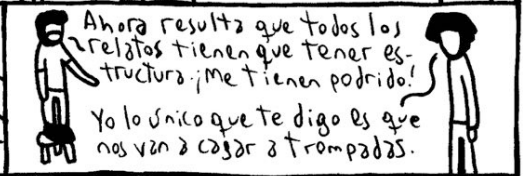 Ahora resulta que todos los
relatos tienen que tener es-
tructura. ¡Me tienen podrido!
Yo lo único que te digo es que
nos van a cagar a trompadas.